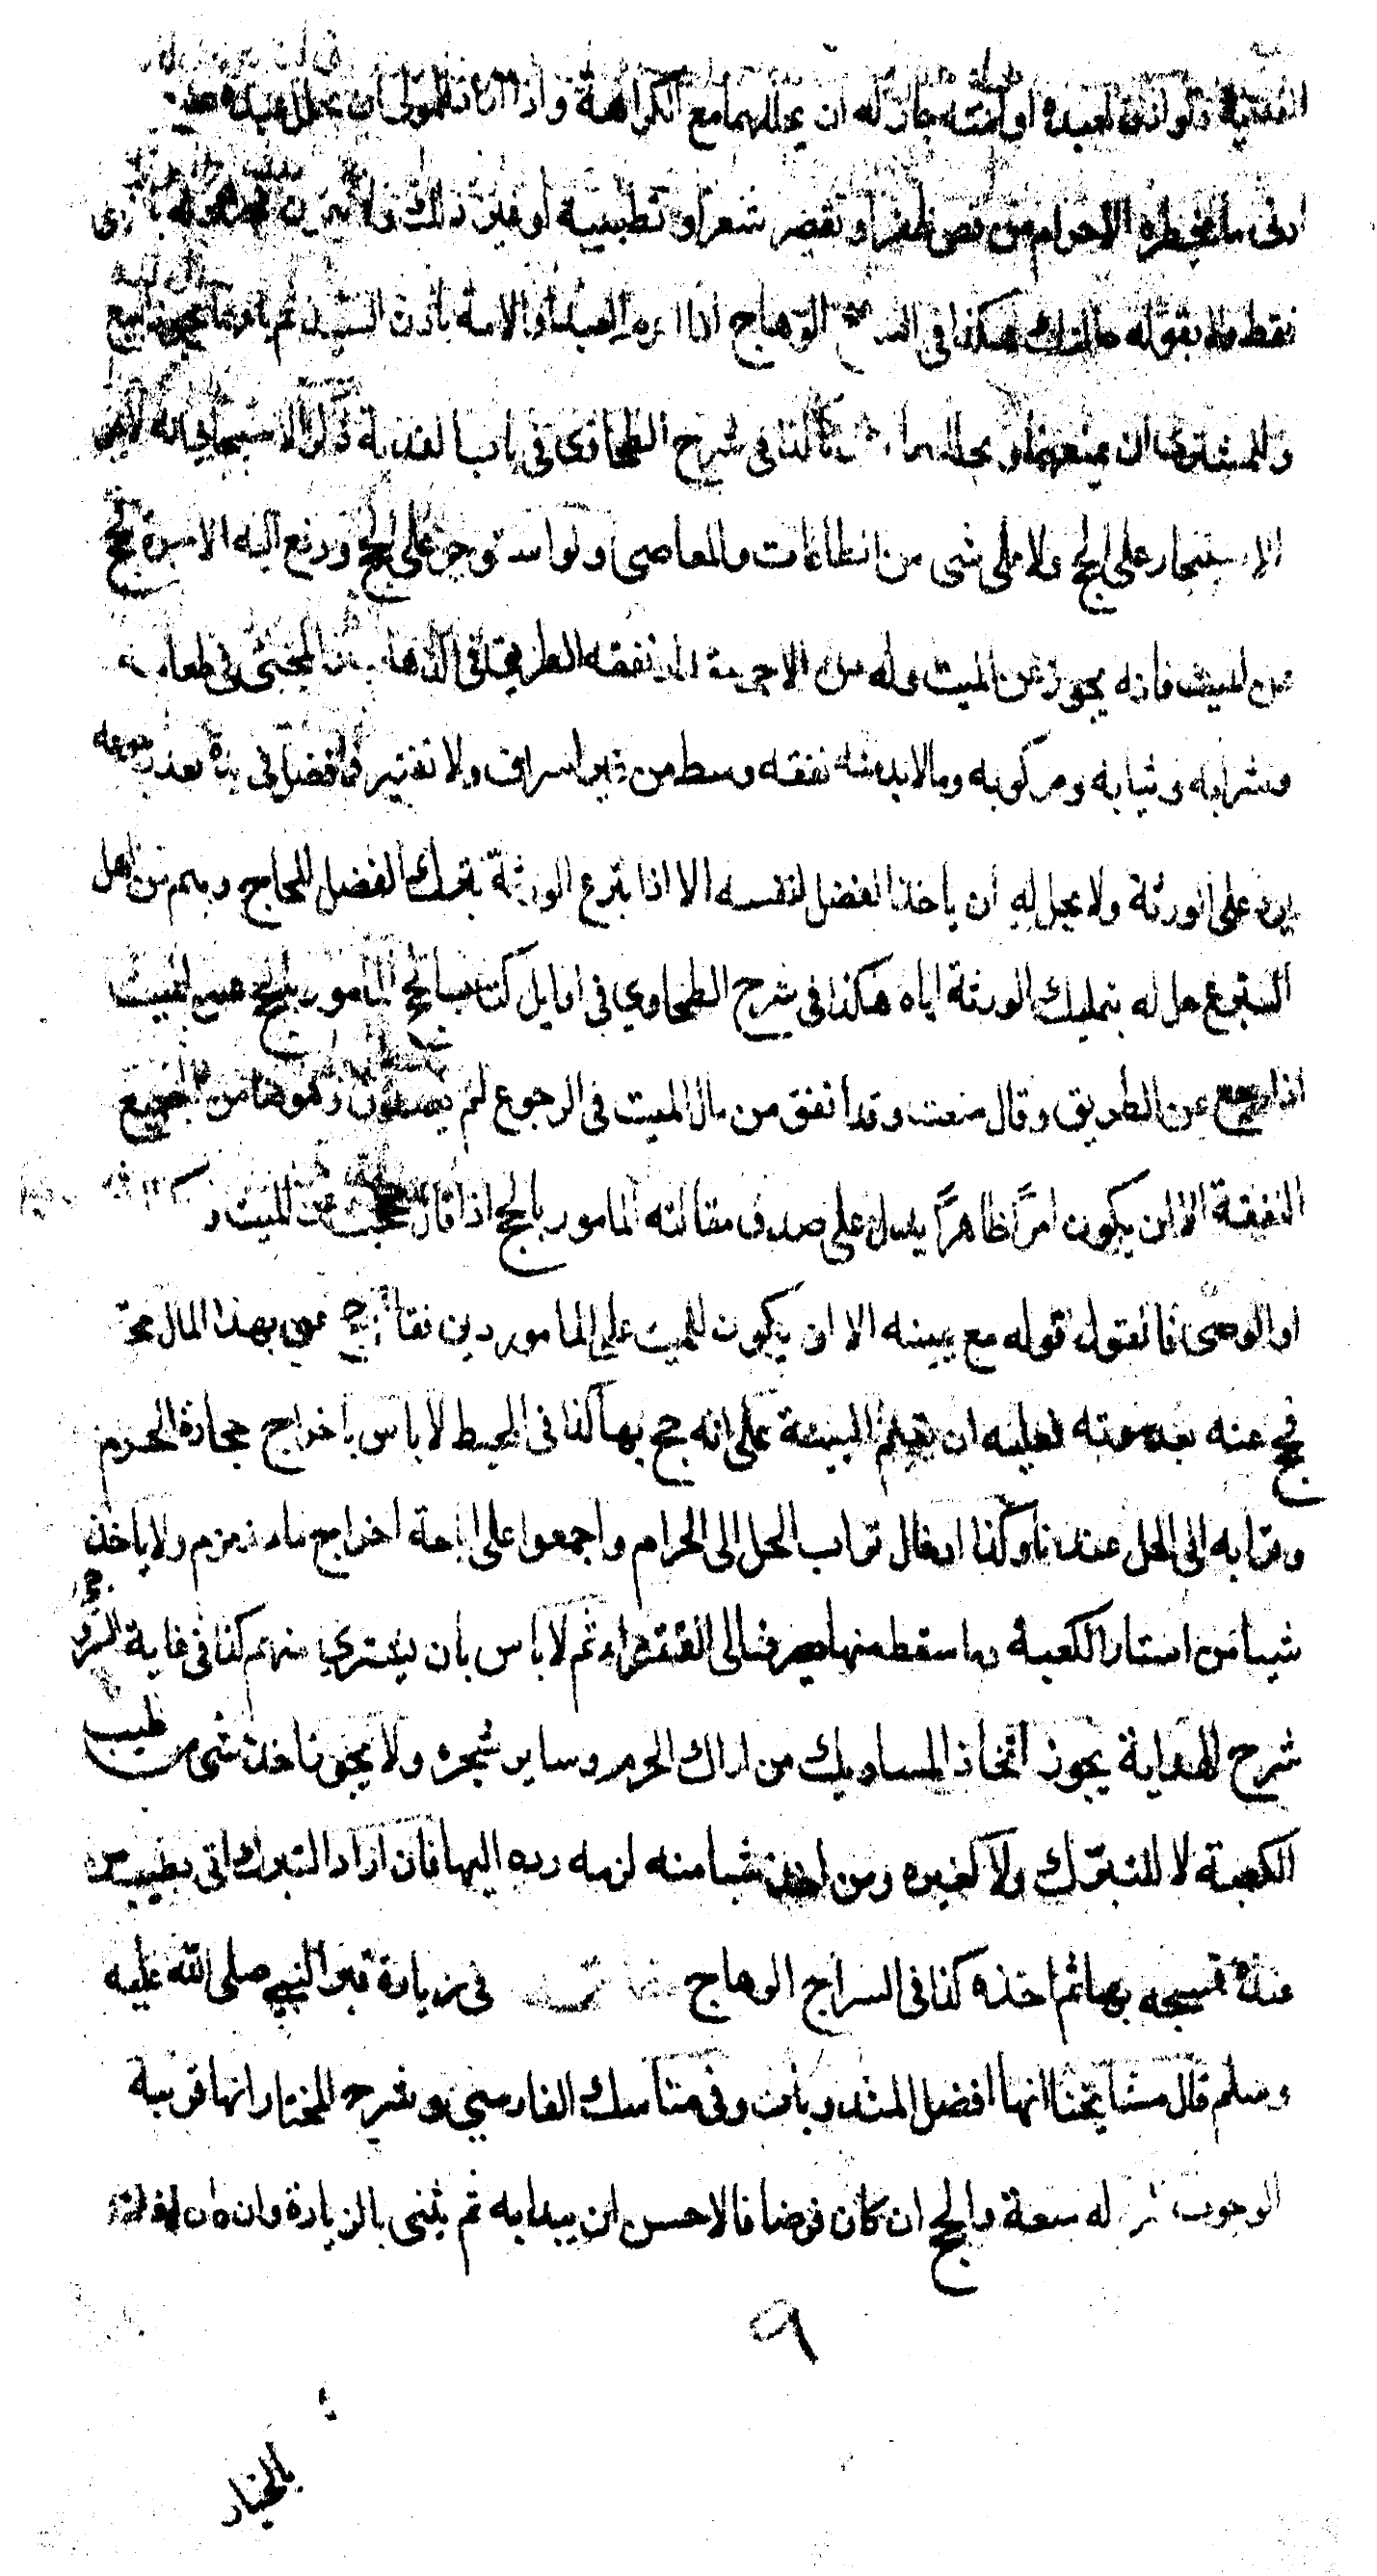 ولو اذن لعبده او امته جاز له ان يحللهما مع الكراهة واذا اراد المولى ان يحلل عبده
ادنى ما يحظره الاحرام من قص ظفر او تقصير شعر او تطييبه او غير ذلك ولا
فقط ولا بقوله حللتك هكذا في السراج الوهاج اذا احرم العبد او الامة باذن السيد ثم باعهما يجوز البيع
وللمشتري ان يمنعهما ويحللهما كذا في شرح الطحاوي في باب الفدية ذكر الاسبيجابي انه لا يجوز
الاستيجار على الحج ولا على شى من الطاعات والمعاصى ولو استوجر على الحج ودفع اليه الاجرة فحج
عن الميت فانه يجوز عن الميت وله من الاجرة مقدار نفقه الطريق في الذهاب والمجئى في طعامه
وشرابه وثيابه ومركوبه وما لابد منه نفقه وسط من غير اسراف ولا تقتير وما فضل في يده بعد رجوعه
يرد على الورثة ولا يحل له ان ياخذ الفضل لنفسه الا اذا تبرع الورثة بترك الفضل للحاج وهم من اهل
التبرع حل له بتمليك الورثة اياه هكذا في شرح الطحاوي في اوايل كتاب الحج المامور بالحج عن الميت
اذا رجع عن الطريق وقال منعت وقد انفق من مال الميت في الرجوع لم يصدق وهو ضامن لجميع
النفقة الا ان يكون امرًا ظاهرًا يدل على صدق مقالته المامور بالحج اذا قال حججت عن الميت و
او الوصى فالقول قوله مع يمينه الا ان يكون للميت على المامور دين فقال حج عنى بهذا المال
فحج عنه بعد موته فعليه ان يقيم البينة على انه حج بها كذا في المحيط لا باس باخراج حجارة الحرم
وترابه الى الحل عندنا وكذا ادخال تراب الحل الى الحرام واجمعوا على اباحة اخراج ماء زمزم ولا ياخذ
شيا من استار الكعبة وما سقط منها يصرف الى الفقراء ثم لا باس بان يشتري منهم كذا في غاية السروجي
شرح الهداية يجوز اتخاذ المساويك من اراك الحرم وساير شجره ولا يجوز اخذ شى من طيب
الكعبة لا للتبرك ولا لغيره ومن اخذ شيا منه لزمه رده اليها فان اراد التبرك اتى بطيب من
عنده فمسحه بها ثم اخذه كذا في السراج الوهاج في زيارة قبر النبي صلى الله عليه
وسلم قال مشايخنا انها افضل المندوبات وفي مناسك الفارسي وشرح المختار انها قريبة
الوجوب له سعة والحج ان كان فرضا فالاحسن ان يبدا به ثم يثنى بالزيارة وان كان نفلا
٩
بالخيار